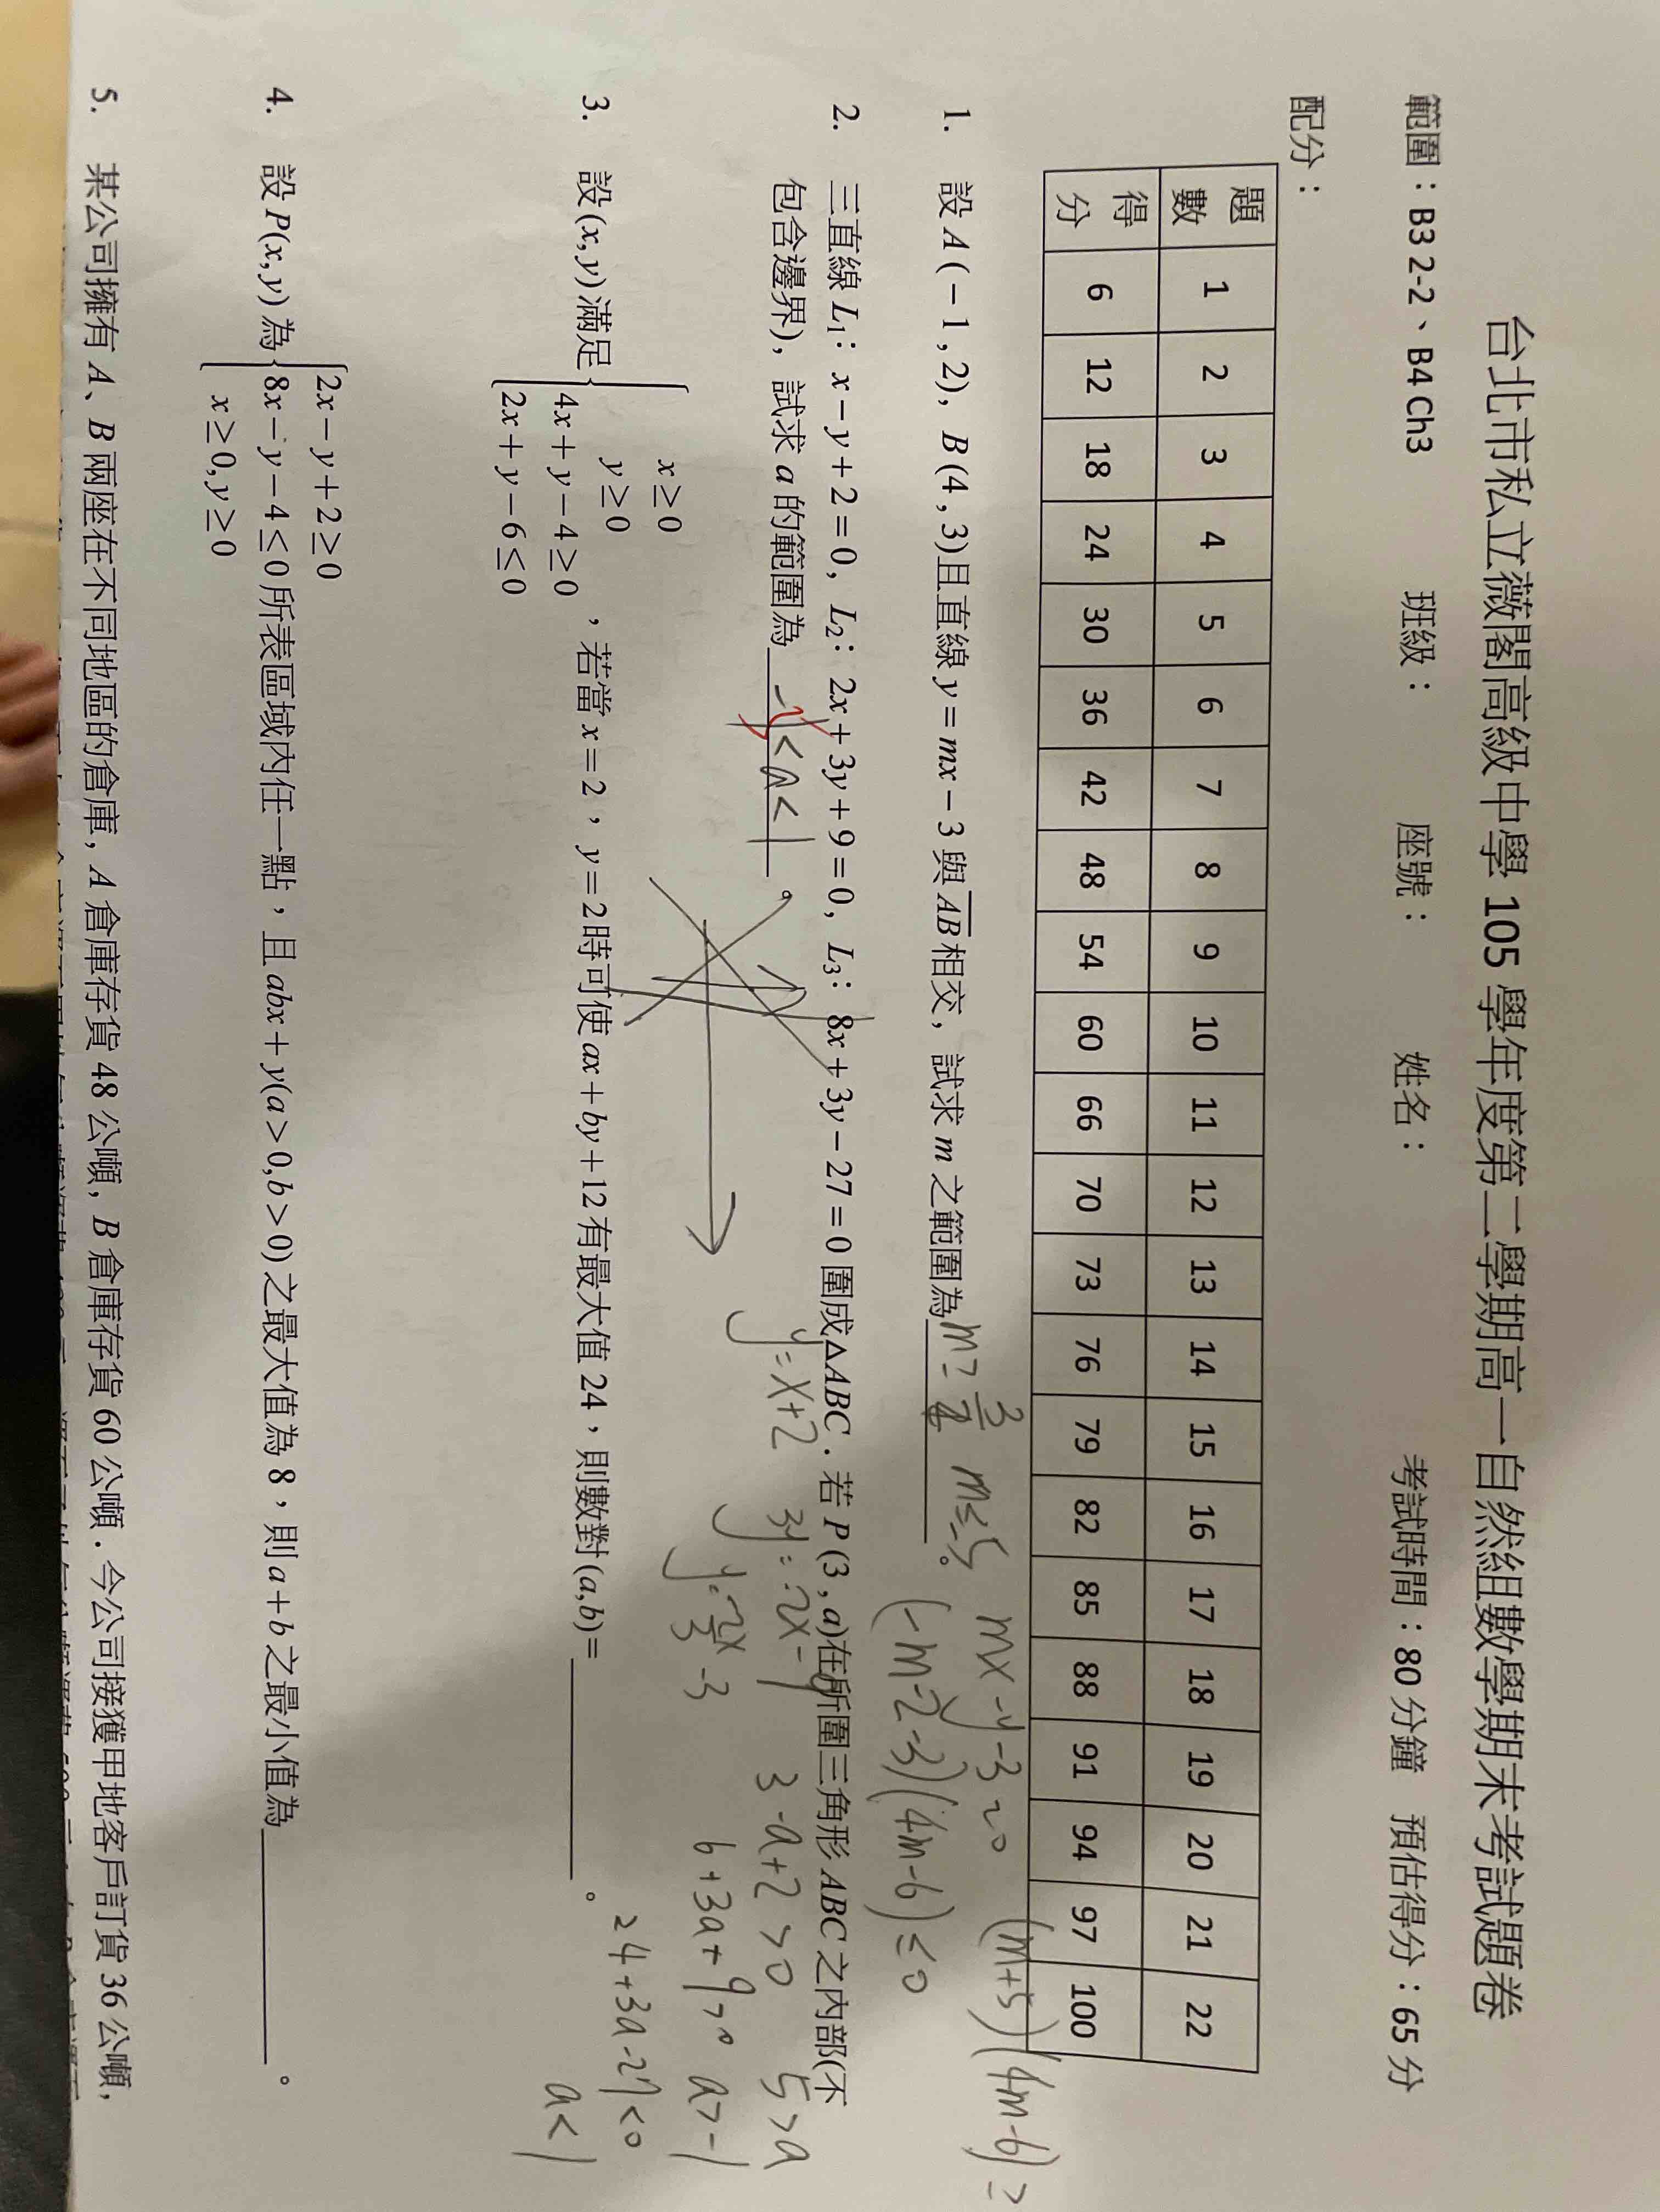 台北市私立薇閣高級中學 105 學年度第二學期高一自然組數學期末考試題卷
範圍：B3 2-2、B4 Ch3 班級： 座號： 姓名： 考試時間：80 分鐘 預估得分：65 分
配分：
題數 1 2 3 4 5 6 7 8 9 10 11 12 13 14 15 16 17 18 19 20 21 22
得分 6 12 18 24 30 36 42 48 54 60 66 70 73 76 79 82 85 88 91 94 97 100
(m+5)(4m-6)≥
mx-y-3=0
1. 設 A(-1,2), B(4,3)且直線 y=mx-3 與AB相交, 試求 m 之範圍為 m≥3/2 m≤-5。
(-m-2-3)(4m-6)≤0
2. 三直線 L₁：x-y+2=0, L₂：2x+3y+9=0, L₃：8x+3y-27=0 圍成△ABC．若 P(3,a)在所圍三角形 ABC 之內部(不
包含邊界), 試求 a 的範圍為 <a<1。
y=x+2 3y=-2x-9 3-a+2>0 5>a
y=-2x/3-3 6+3a+9>0 a>-1
24+3a-27<0
a<1
3. 設(x,y)滿足{x≥0
y≥0
4x+y-4≥0
2x+y-6≤0 ，若當 x=2，y=2時可使 ax+by+12有最大值 24，則數對(a,b)=。
4. 設P(x,y)為{2x-y+2≥0
8x-y-4≤0所表區域內任一點，且abx+y(a>0,b>0)之最大值為 8，則a+b之最小值為。
x≥0,y≥0
5. 某公司擁有 A、B 兩座在不同地區的倉庫, A 倉庫存貨 48 公噸, B 倉庫存貨 60 公噸．今公司接獲甲地客戶訂貨 36 公噸,